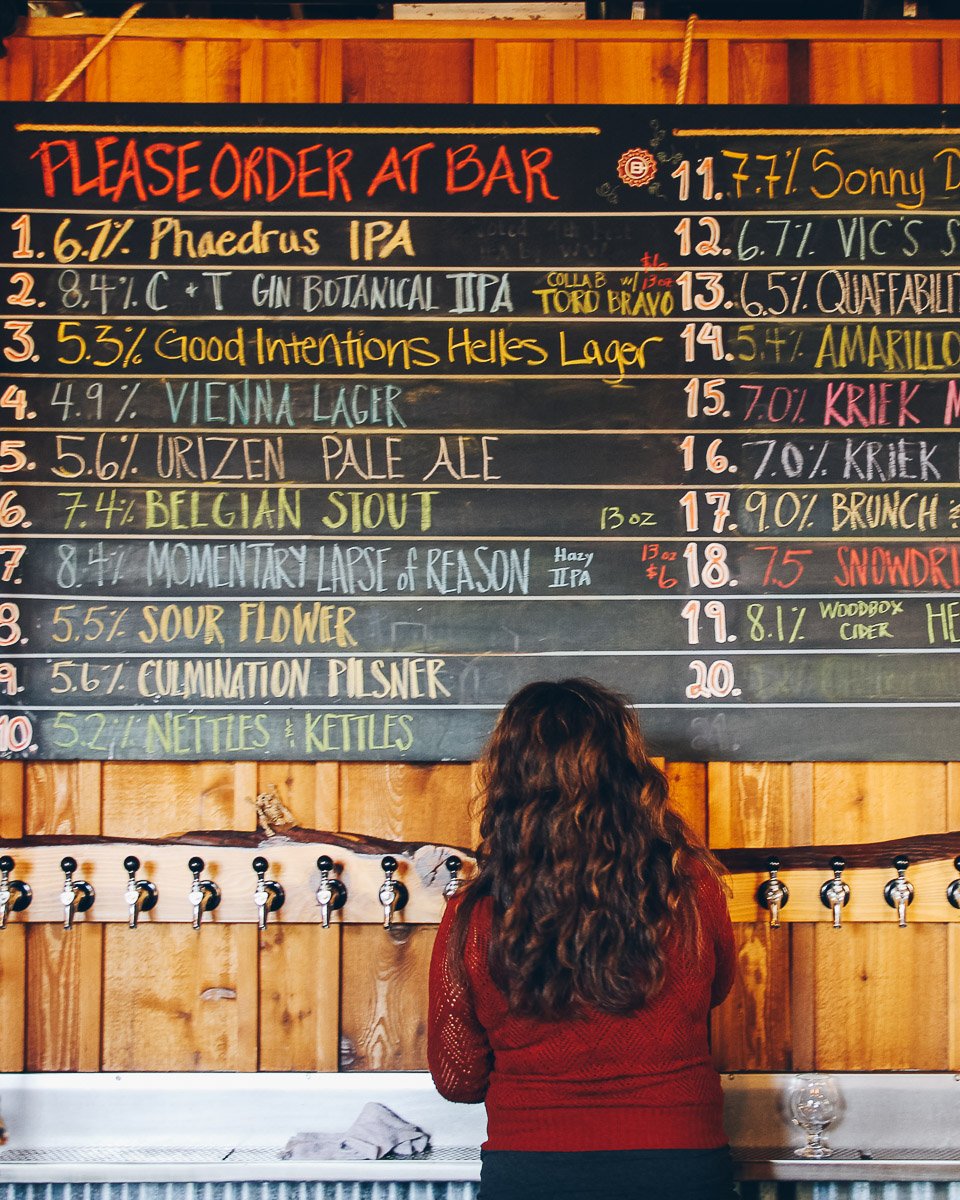 PLEASE ORDER AT BAR
1. 6.7% Phaedrus IPA
2. 8.4% C + T GIN BOTANICAL IIPA COLLAB w/ TORO BRAVO 13 oz $6
3. 5.3% Good Intentions Helles Lager
4. 4.9% VIENNA LAGER
5. 5.6% URIZEN PALE ALE
6. 7.4% BELGIAN STOUT 13 oz
7. 8.4% MOMENTARY LAPSE of REASON Hazy IIPA 13 oz $6
8. 5.5% SOUR FLOWER
9. 5.6% CULMINATION PILSNER
10. 5.2% NETTLES & KETTLES
11. 7.7% Sonny D
12. 6.7% VIC'S S
13. 6.5% QUAFFABILI
14. 5.4% AMARILLO
15. 7.0% KRIEK M
16. 7.0% KRIEK
17. 9.0% BRUNCH &
18. 7.5 SNOWDRI
19. 8.1% WOODBOX CIDER HE
20.
21.